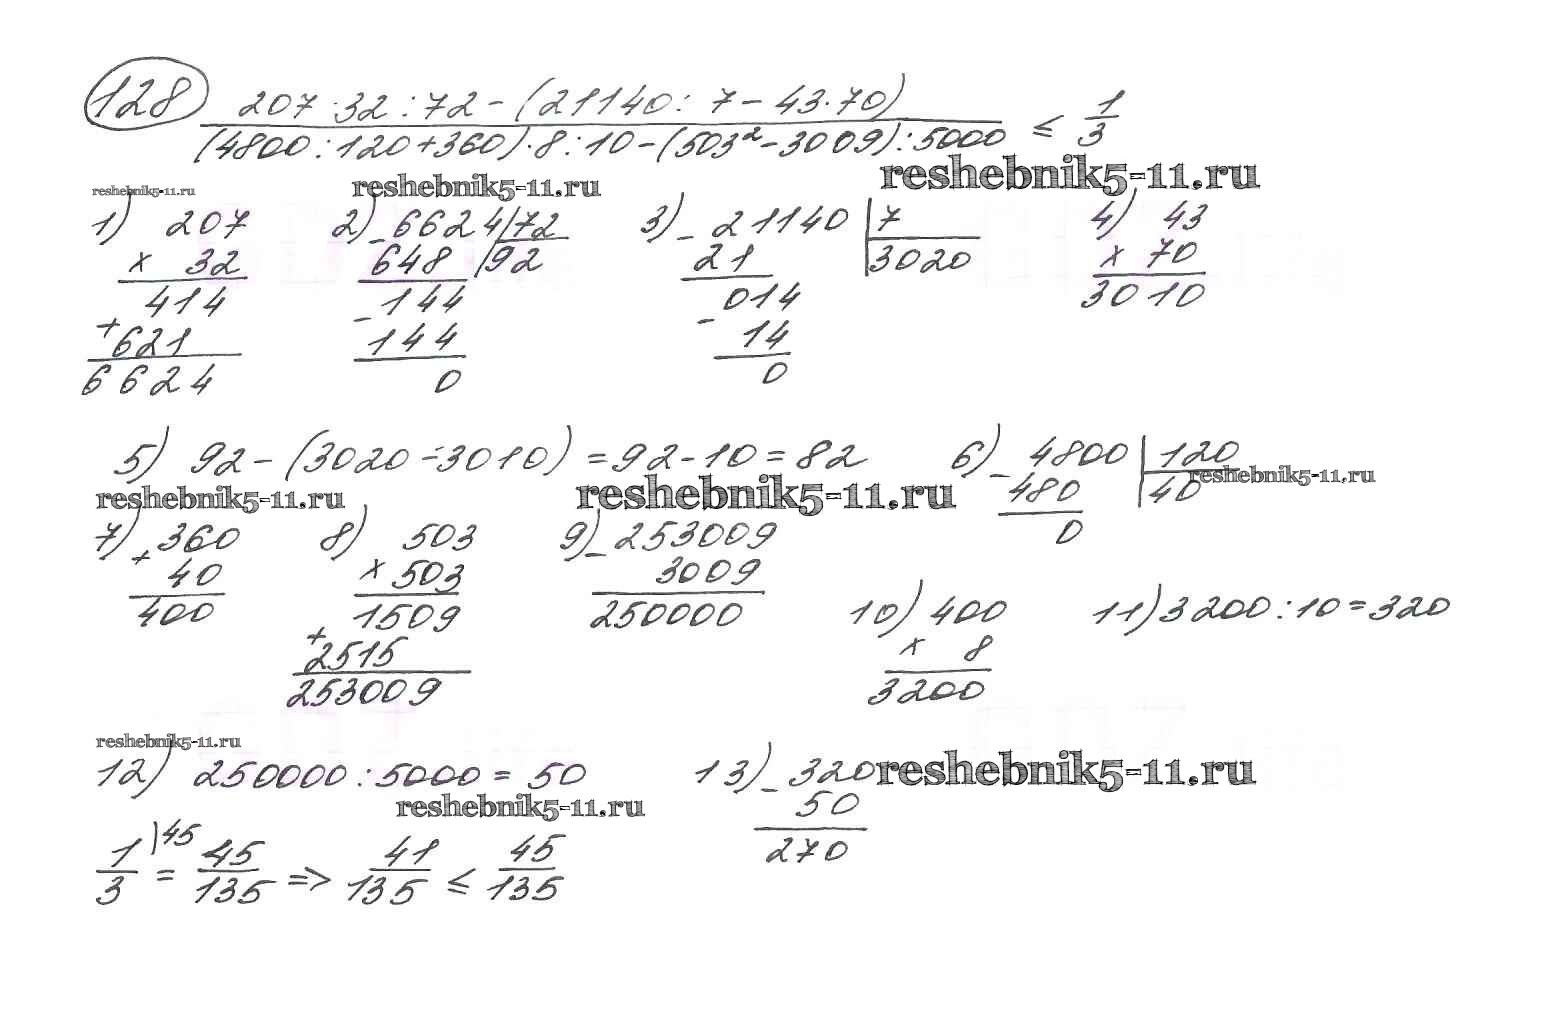 128 207·32:72-(21140:7-43·70)
(4800:120+360)·8:10-(503²-3009):5000 ≤ 1/3
reshebnik5-11.ru reshebnik5-11.ru reshebnik5-11.ru
1) 207 2) -6624|72 3) -21140|7 4) 43
x 32 648 |92 21 |3020 x 70
414 -144 014 3010
+621 144 -14
6624 0 0
5) 92-(3020-3010)=92-10=82 6) -4800|120
reshebnik5-11.ru reshebnik5-11.ru 480 |40 reshebnik5-11.ru
0
7) +360 8) 503 9) -253009
40 x 503 3009
400 1509 250000 10) 400 11) 3200:10=320
+2515 x 8
253009 3200
reshebnik5-11.ru
12) 250000:5000=50 13) -320 reshebnik5-11.ru
reshebnik5-11.ru 50
270
1/3 |45 = 45/135 => 41/135 ≤ 45/135